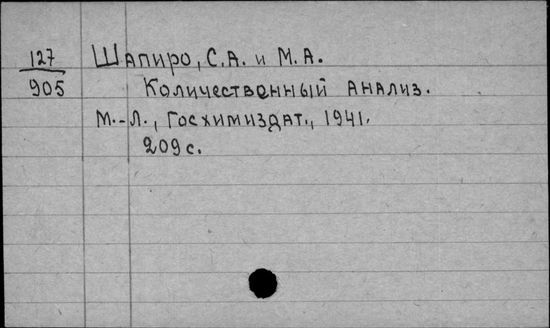 127 Шапиро, С.А. и М.А.
905 Количественный анализ.
М.-Л., Госхимиздат., 1941.
209 с.